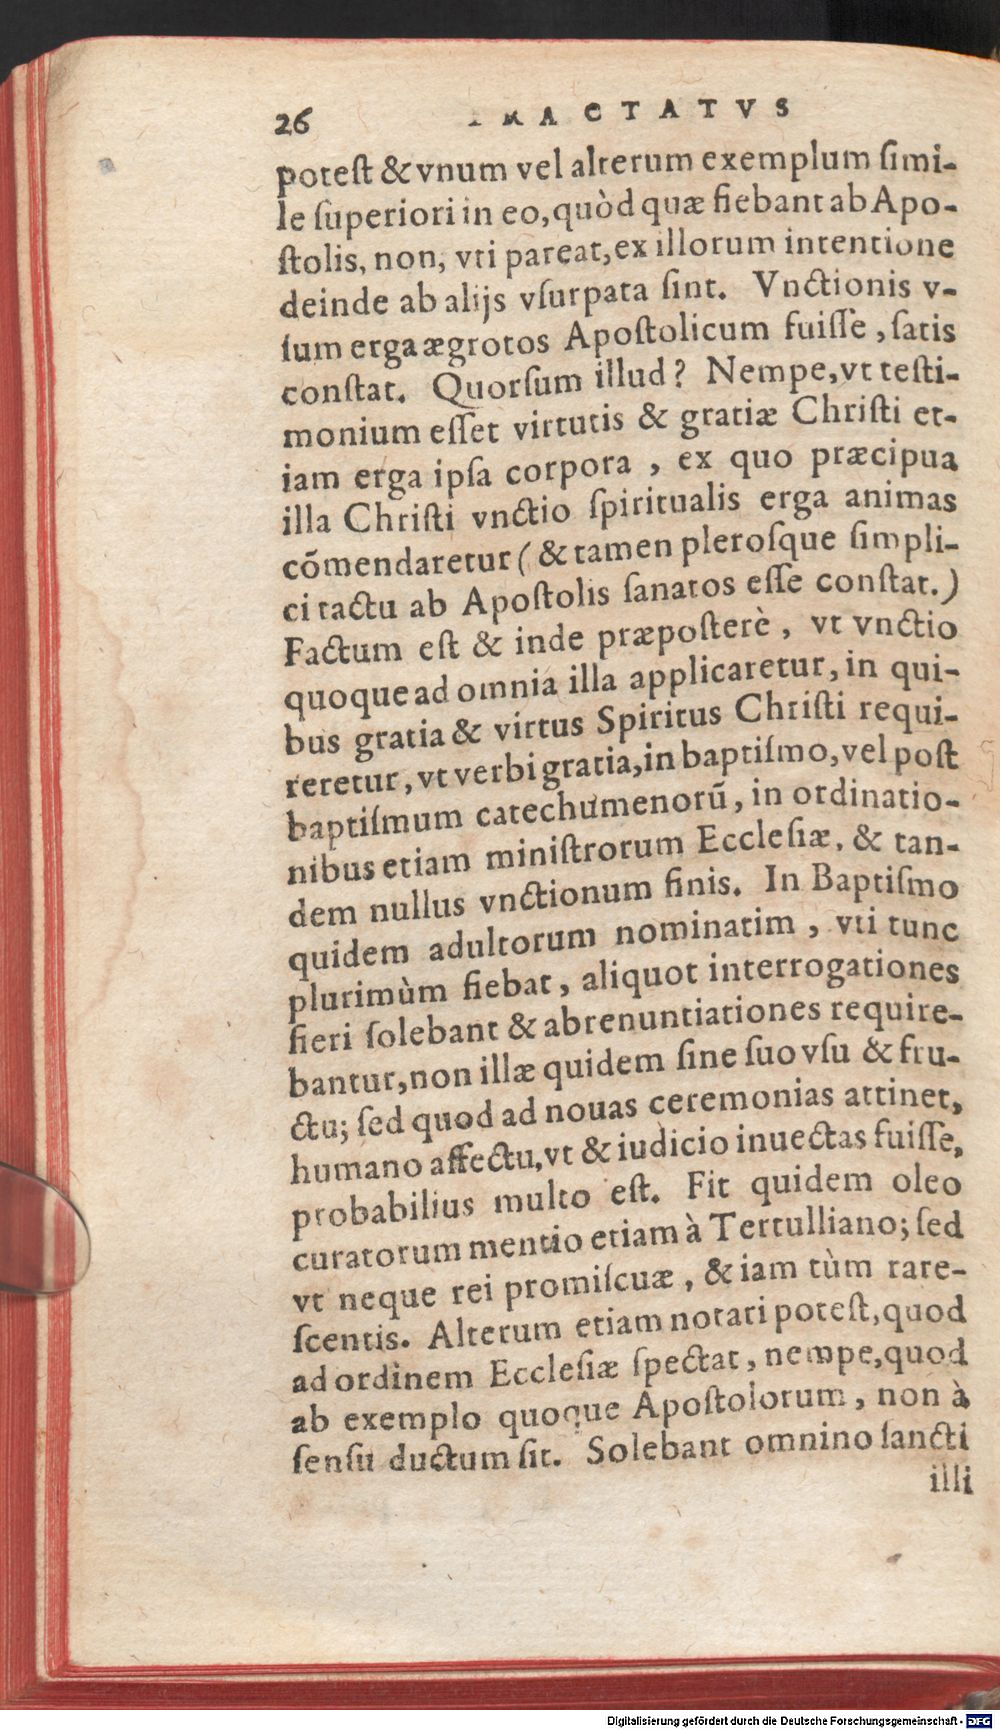 26 TRACTATVS
poteſt & vnum vel alterum exemplum ſimi-
le ſuperiori in eo, quòd quæ fiebant ab Apo-
ſtolis, non, vti pareat, ex illorum intentione
deinde ab alijs vſurpata ſint. Vnctionis v-
ſum erga ægrotos Apoſtolicum fuiſſe, ſatis
conſtat. Quorſum illud? Nempe, vt teſti-
monium eſſet virtutis & gratiæ Chriſti et-
iam erga ipſa corpora, ex quo præcipua
illa Chriſti vnctio ſpiritualis erga animas
cõmendaretur (& tamen pleroſque ſimpli-
ci tactu ab Apoſtolis ſanatos eſſe conſtat.)
Factum eſt & inde præpoſterè, vt vnctio
quoque ad omnia illa applicaretur, in qui-
bus gratia & virtus Spiritus Chriſti requi-
reretur, vt verbi gratia, in baptiſmo, vel poſt
baptiſmum catechumenorũ, in ordinatio-
nibus etiam miniſtrorum Eccleſiæ, & tan-
dem nullus vnctionum finis. In Baptiſmo
quidem adultorum nominatim, vti tunc
plurimùm fiebat, aliquot interrogationes
fieri ſolebant & abrenuntiationes require-
bantur, non illæ quidem ſine ſuo vſu & fru-
ctu; ſed quod ad nouas ceremonias attinet,
humano affectu, vt & iudicio inuectas fuiſſe,
probabilius multo eſt. Fit quidem oleo
curatorum mentio etiam à Tertulliano; ſed
vt neque rei promiſcuæ, & iam tùm rare-
ſcentis. Alterum etiam notari poteſt, quod
ad ordinem Eccleſiæ ſpectat, nempe, quod
ab exemplo quoque Apoſtolorum, non à
ſenſu ductum ſit. Solebant omnino ſancti
illi
Digitalisierung gefördert durch die Deutsche Forschungsgemeinschaft - DFG